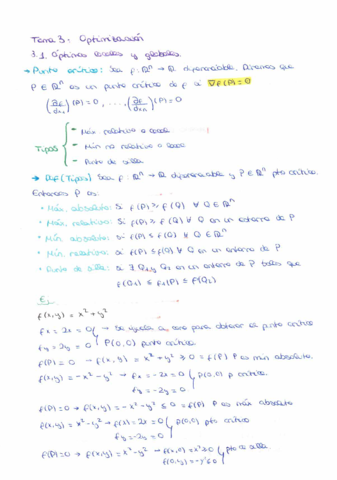 Tema 3: Optimización
3.1. Óptimos locales y globales
→ Punto crítico: Sea f: ℝⁿ → ℝ diferenciable. Diremos que
P ∈ ℝⁿ es un punto crítico de f si ∇f(P)=0
(∂f/∂x₁)(P)=0, ..., (∂f/∂xₙ)(P)=0
- Máx relativo o local
Tipos - Mín relativo o local
- Punto de silla
→ Def (Tipos) Sea f: ℝⁿ → ℝ diferenciable y P ∈ ℝⁿ pto crítico.
Entonces P es:
• Máx. absoluto: si f(P) ≥ f(Q) ∀ Q ∈ ℝⁿ
• Máx. relativo: si f(P) ≥ f(Q) ∀ Q en un entorno de P
• Mín. absoluto: si f(P) ≤ f(Q) ∀ Q ∈ ℝⁿ
• Mín. relativo: si f(P) ≤ f(Q) ∀ Q en un entorno de P
• Punto de silla: si ∃ Q₁ y Q₂ en un entorno de P tales que
f(Q₁) ≤ f(P) ≤ f(Q₂)
Ej
f(x,y) = x² + y²
fx = 2x = 0 → Se iguala a cero para obtener el punto crítico
fy = 2y = 0 P(0,0) punto crítico
f(P) = 0 → f(x,y) = x² + y² ≥ 0 = f(P) P es mín absoluto.
f(x,y) = -x² - y² → fx = -2x = 0 P(0,0) p crítico.
fy = -2y = 0
f(P) = 0 → f(x,y) = -x² - y² ≤ 0 = f(P) P es máx absoluto
f(x,y) = x² - y² → f(x) = 2x = 0 P(0,0) pto crítico
fy = -2y = 0
f(P) = 0 → f(x,y) = x² - y² → f(x,0) = x² ≥ 0 pto de silla
f(0,y) = -y² ≤ 0